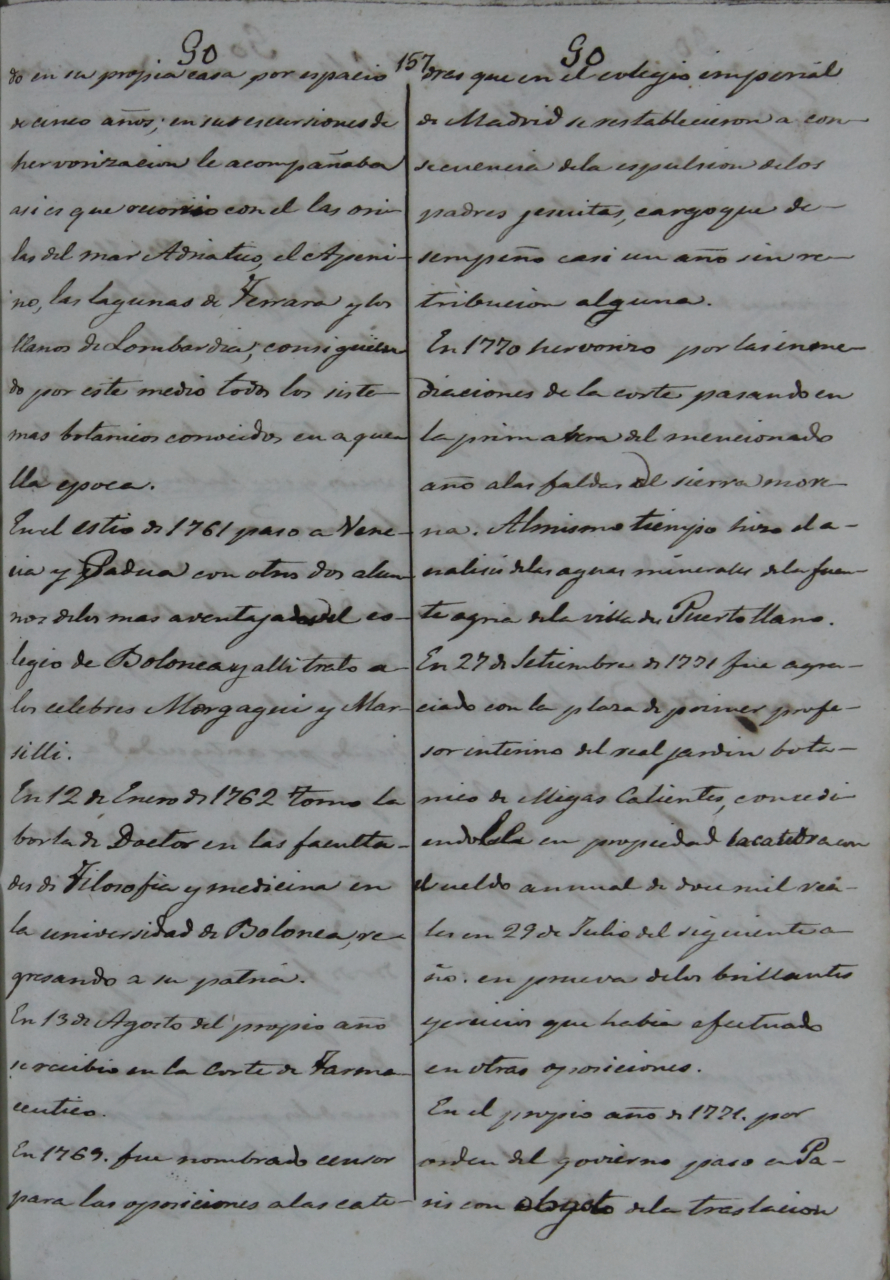 Go
157
Go
do en su propia casa por espacio
de cinco años; en sus escursiones de
hervorizacion le acompañaba
asi es que recorrio con el las ori-
las del mar Adriatico, el Apeni-
no, las lagunas de Ferrara y los
llanos de Lombardia; consiguien
do por este medio todos los siste-
mas botanicos conocidos en aque
lla epoca.
En el estio de 1761 paso a Vene-
cia y Padua con otros dos alum-
nos de los mas aventajados del co-
legio de Bolonea y alli trato a-
los celebres Morgagui y Mar-
silli.
En 12 de Enero de 1762 tomo la
borla de Doctor en las faculta-
des de Filosofia y medicina en
la universidad de Bolonea, re-
gresando a su patria.
En 13 de Agosto del propio año
se recibio en la Corte de Farma-
ceutico.
En 1763. fue nombrado censor
para las oposiciones a las cate-
dras que en el colegio imperial
de Madrid se restablecieron a con-
secuencia de la espulsion de los
padres jesuitas, cargo que de-
sempeño casi un año sin re-
tribucion alguna.
En 1770 hervorizo por las inme-
diaciones de la corte pasando en
la primabera del mencionado
año a las faldas de sierra more-
na. Al mismo tiempo hizo el a-
nalisis de las aguas minerales de la fuen-
te agria de la villa de Puertollano.
En 27 de Setiembre de 1771 fue agra-
ciado con la plaza de primer profe-
sor interino del real jardin bota-
nico de Migas Calientes, concedi
endolela en propiedad la catedra con
el sueldo annual de doce mil rea-
les en 29 de Julio del siguiente a-
ño. en prueva de los brillantes
ejercicios que habia efectuado
en otras oposiciones.
En el propio año de 1771. por
orden del govierno paso a Pa-
ris con obgeto de la traslacion